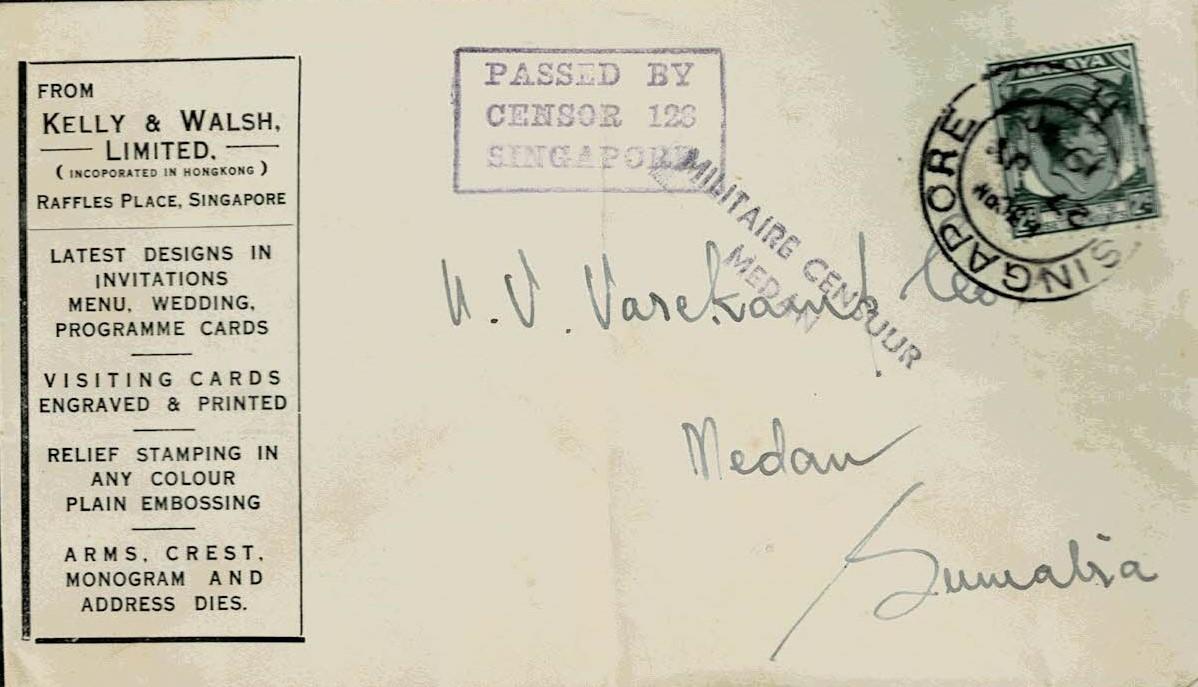 FROM
KELLY & WALSH,
LIMITED.
( INCOPORATED IN HONGKONG )
RAFFLES PLACE, SINGAPORE
LATEST DESIGNS IN
INVITATIONS
MENU, WEDDING,
PROGRAMME CARDS
VISITING CARDS
ENGRAVED & PRINTED
RELIEF STAMPING IN
ANY COLOUR
PLAIN EMBOSSING
ARMS, CREST,
MONOGRAM AND
ADDRESS DIES.
PASSED BY
CENSOR 128
SINGAPORE
MILITAIRE CENSUUR
MEDAN
MALAYA
SINGAPORE
N.V. Varekamp & Co
Medan
Sumatra